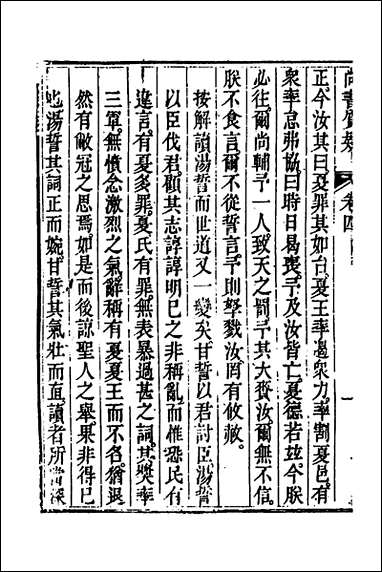 尚書質疑 卷四
正今汝其曰夏罪其如台夏王率遏衆力率割夏邑有
衆率怠弗協曰時日曷喪予及汝皆亡夏德若玆今朕
必往爾尚輔予一人致天之罰予其大賚汝爾無不信
朕不食言爾不從誓言予則孥戮汝罔有攸赦
按解讀湯誓而世道又一變矣甘誓以君討臣湯誓
以臣伐君顧其志諄諄明已之非稱亂而惟恐民有
違言有夏多罪夏氏有罪無表暴過甚之詞其奬率
三軍無憤念激烈之氣辭稱有夏夏王而不名猶退
然有敝冠之思焉如是而後諒聖人之舉果非得已
也湯誓其詞正而婉甘誓其氣壯而直讀者所當深